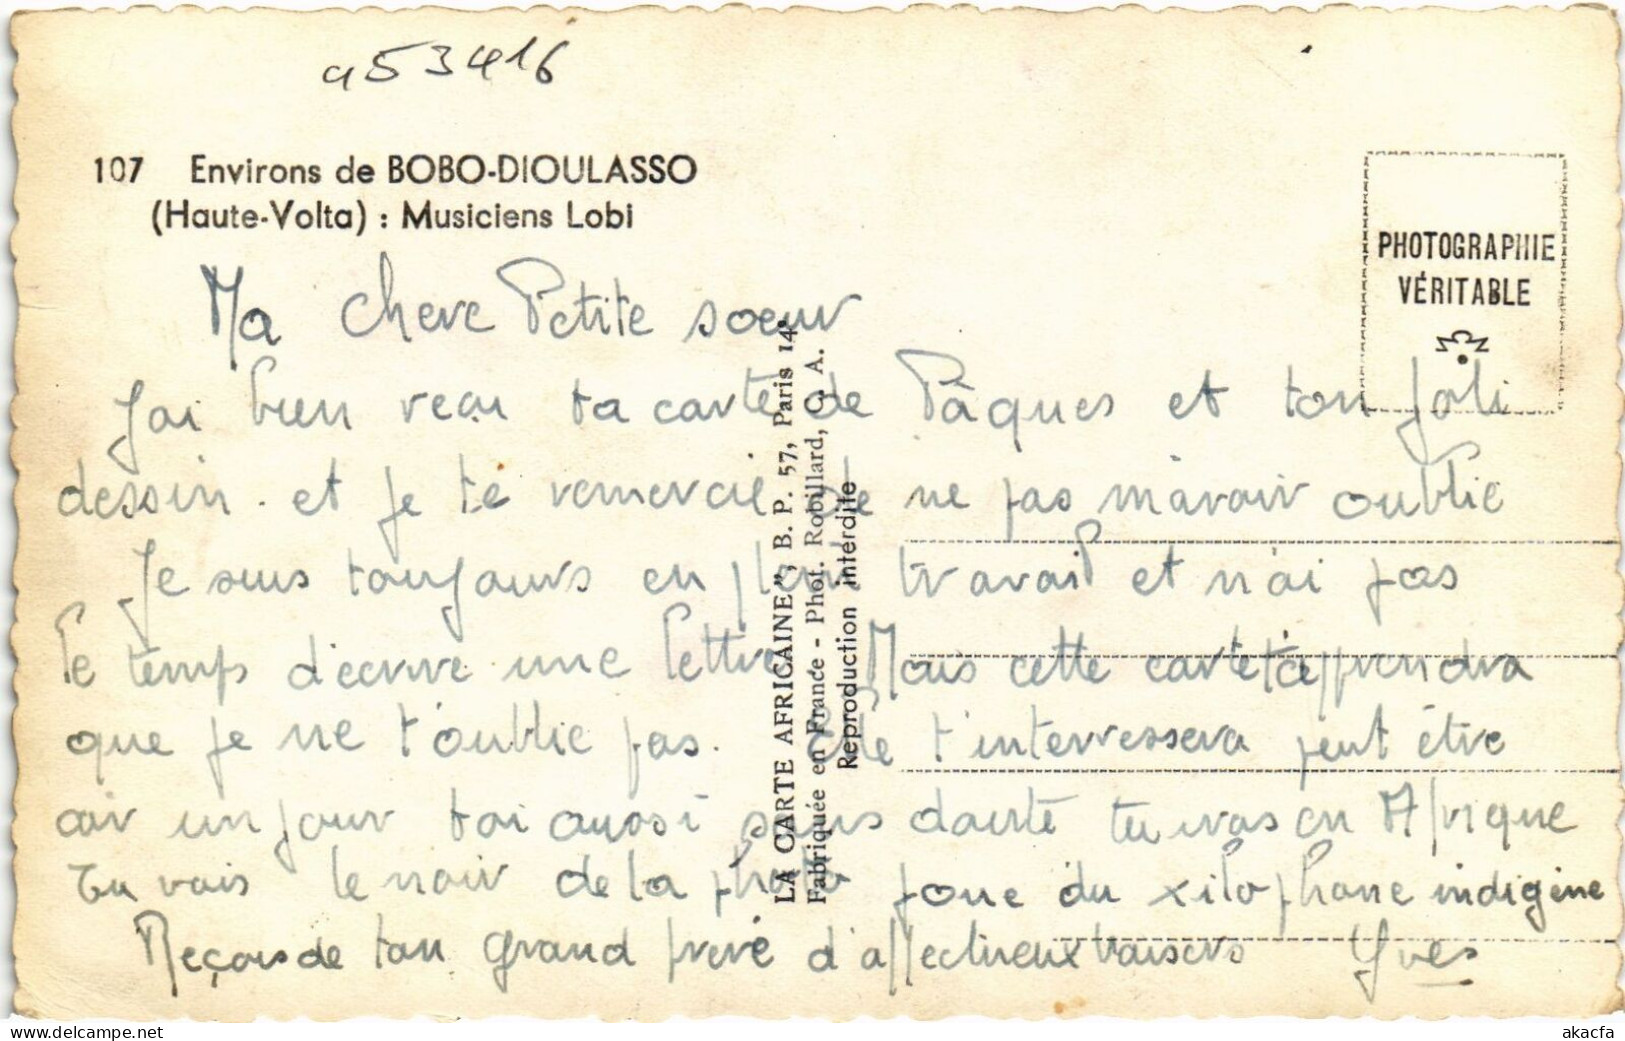 a53416
107 Environs de BOBO-DIOULASSO
(Haute-Volta) : Musiciens Lobi
PHOTOGRAPHIE
VÉRITABLE
Ma chere Petite soeur
J'ai bien reçu ta carte de Pâques et ton joli
dessin. et je te remercie de ne pas m'avoir oublié
Je suis toujours en plein travail et n'ai pas
le temps d'ecrire une lettre Mais cette carte t'apprendra
que je ne t'oublie pas. Elle t'interressera peut être
car un jour toi aussi sans doute tu iras en Afrique
Tu vois le noir de la photo joue du xilophone indigène
Reçois de ton grand frere d'affectueux baisers Yves
LA CARTE AFRICAINE", B. P. 57, Paris 14e
Fabriquée en France - Phot. Robillard, C. A.
Reproduction interdite
www.delcampe.net
akacfa